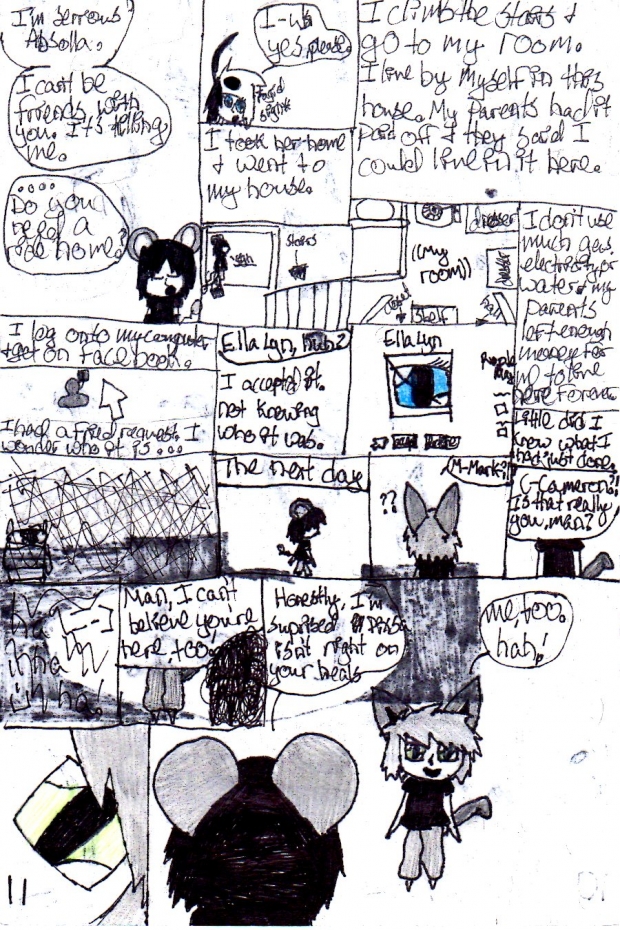 I'm serrous
Absolla.
I can't be
friends with
you. It's
me.
.....
Do you
need a
ride home?
I-uh
yes, please.
I took her home
& went to
my house.
I climb the stairs &
go to my room.
I live by myself in this
house. My Parents had it
paid off & they said I
could live in it here.
stairs
((My
room))
dresser
closet
shelf
I don't use
much gas,
electrisity or
water & my
parents
left enough
money for
me to live
here forever.
I log onto my computer
& get on facebook.
I had a fried request. I
wonder who it is...
Ella Lyn, huh?
I accepted it.
not knowing
who it was.
Ella Lyn
Little did I
know what I
had just done.
The next day
??
(M-Mark?!)
C-Cameron?!
Is that really
you, man?
Man, I can't
believe you're
here, too.
Honestly, I'm
suprised
isn't right on
your heals
me, too.
hah!
11